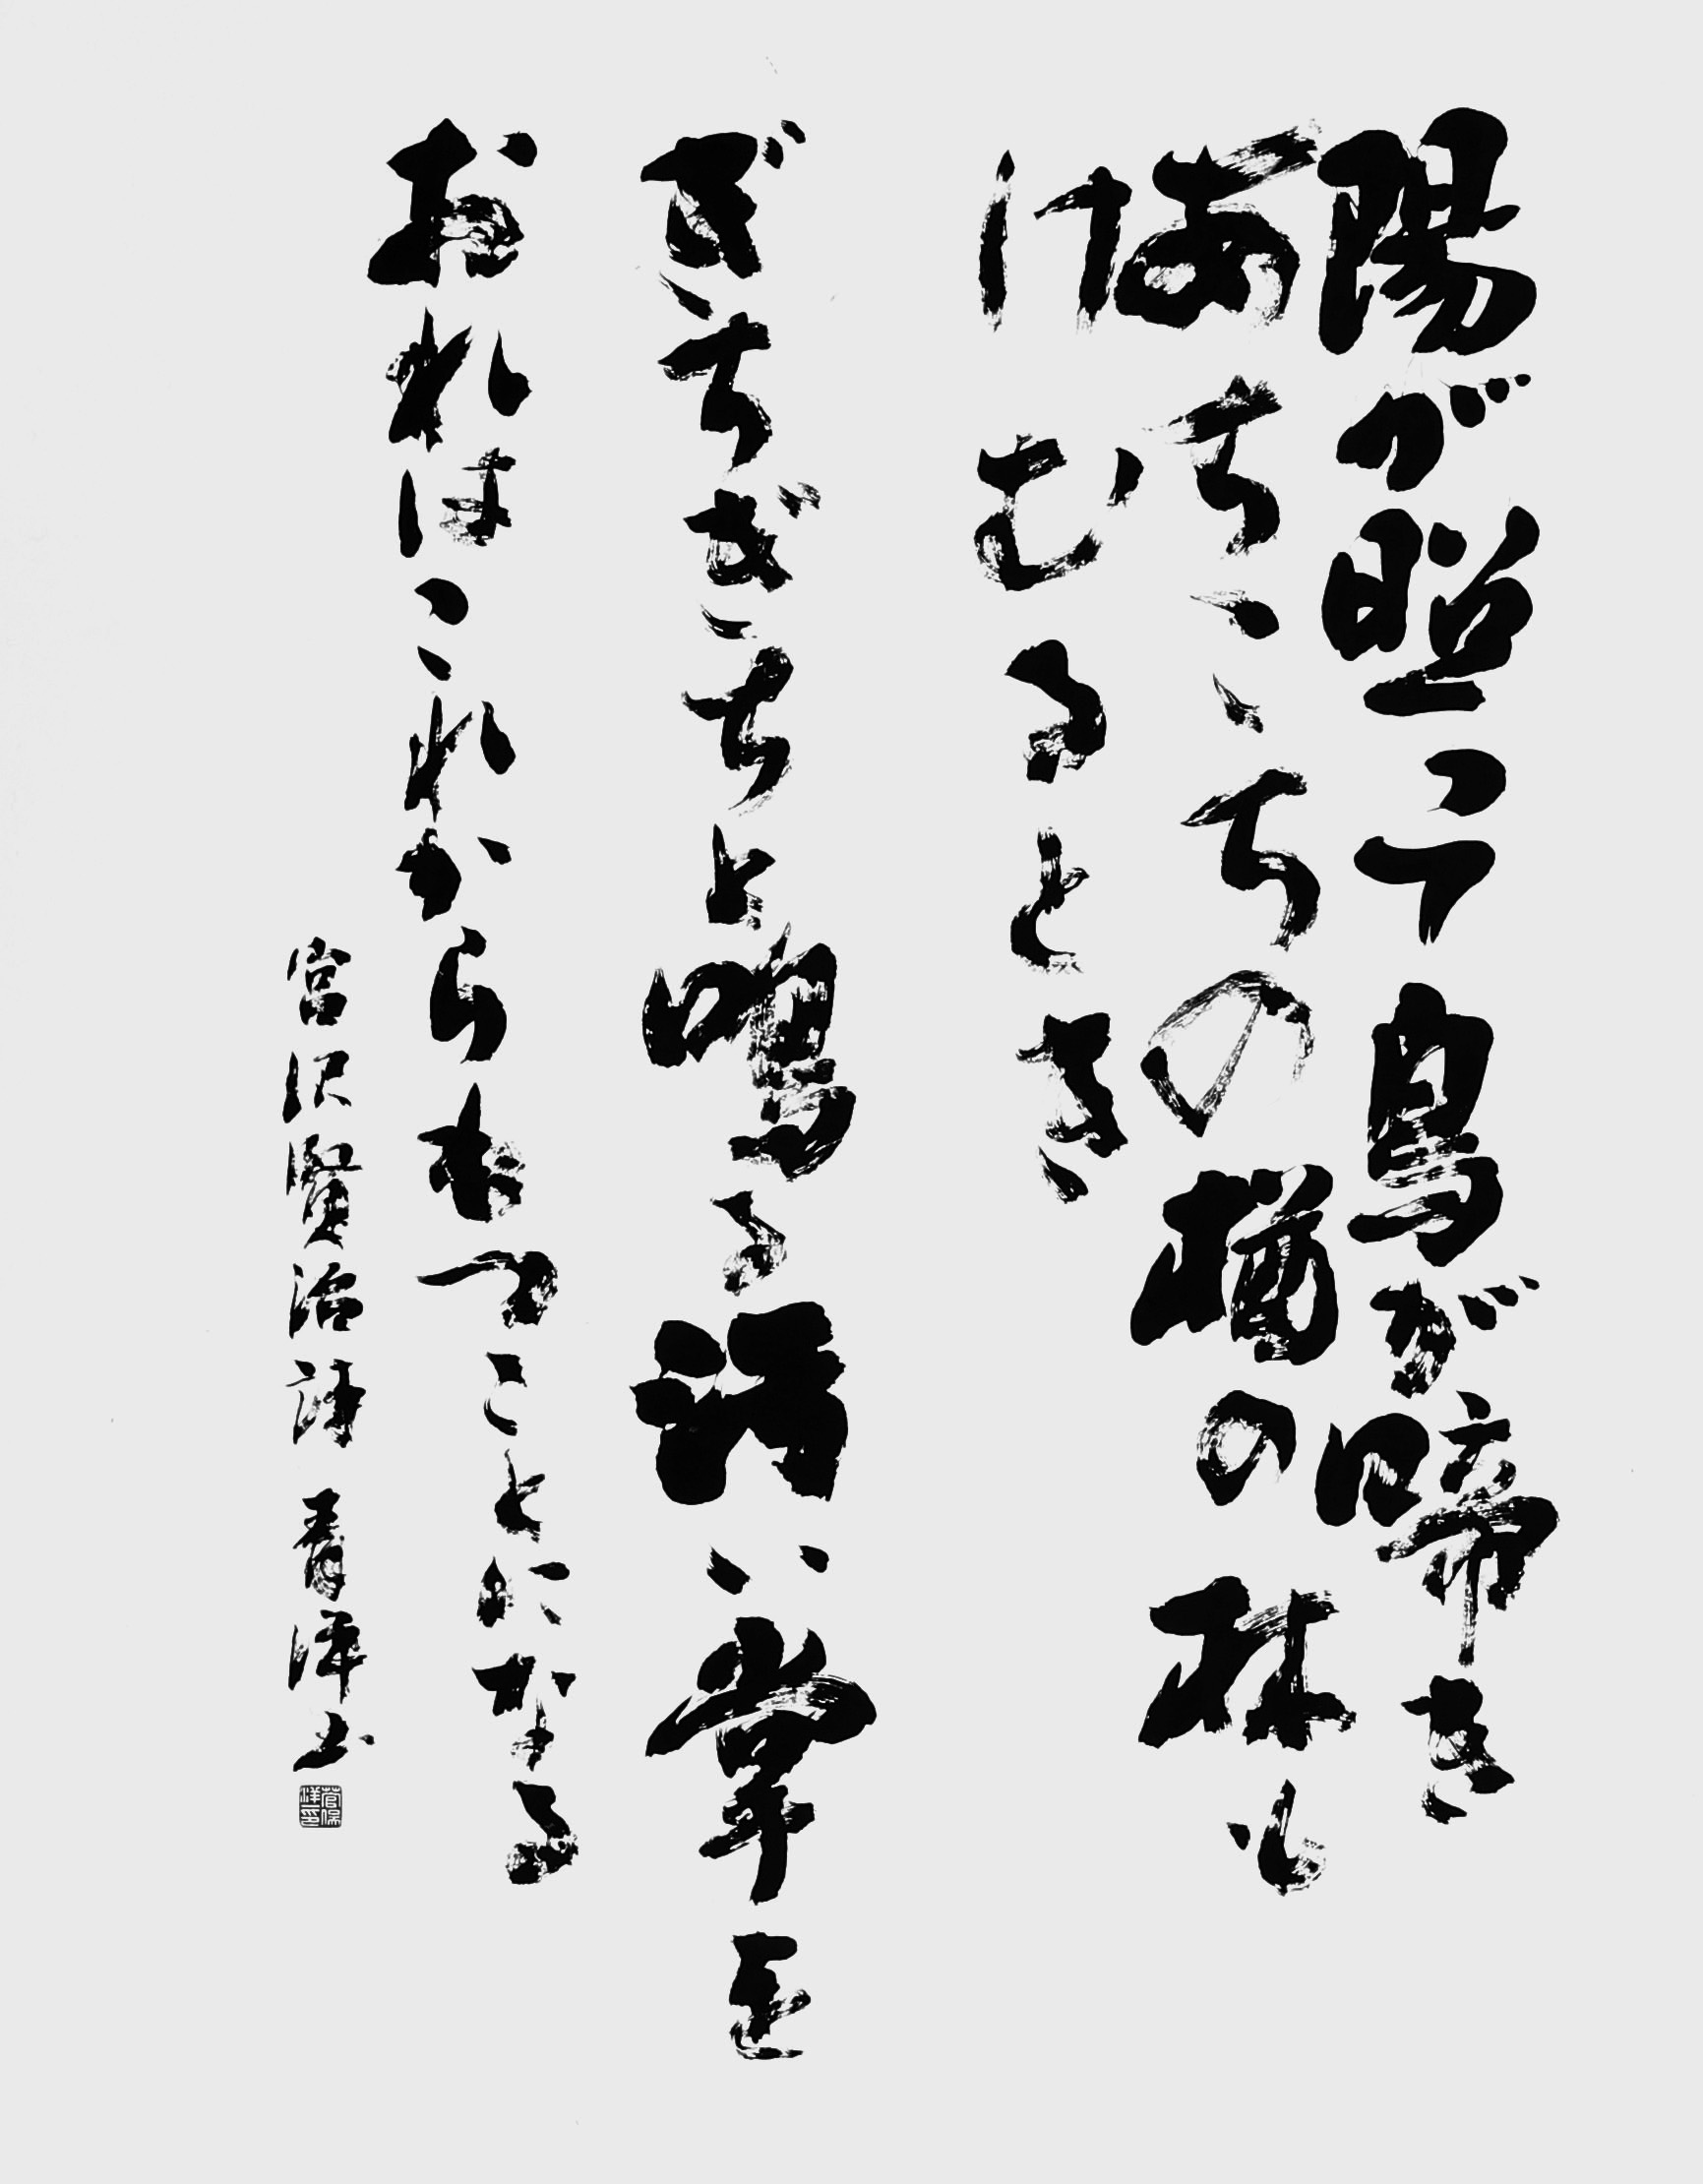 陽が照って鳥が啼き
あちこちの楢の林も
けむるとき
ぎちぎちと鳴る汚い掌を
おれはこれからもつことになる
宮沢賢治詩 青洋书